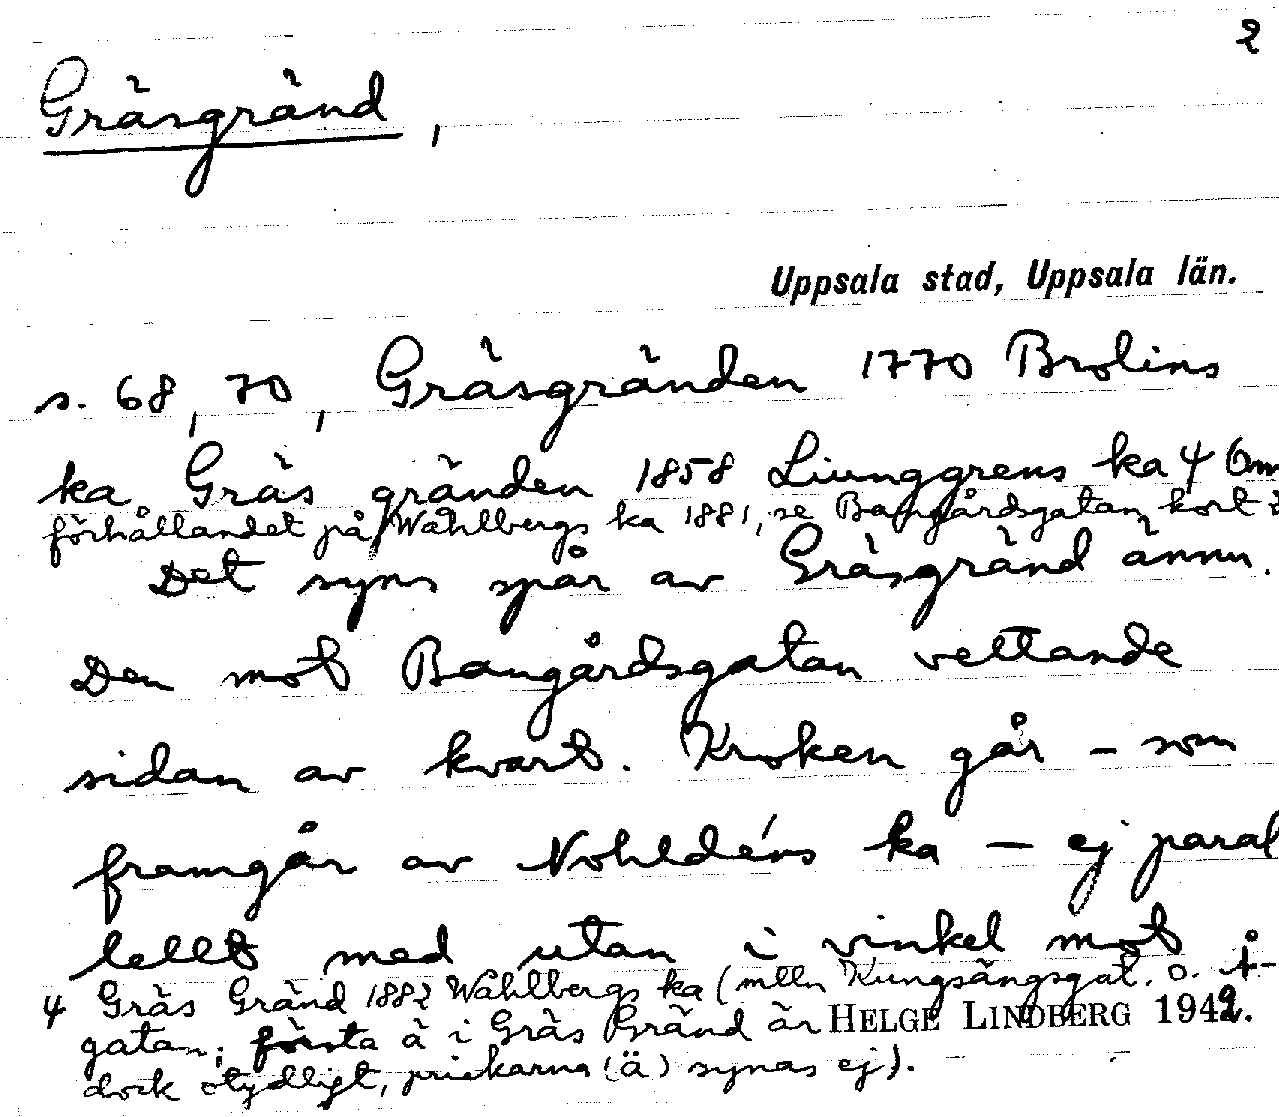 2
Gräsgränd,
Uppsala stad, Uppsala län.
s. 68, 70, Gräsgränden 1770 Brolins
ka Gräs gränden 1858 Ljunggrens ka 4 Om
förhållandet på Wahlbergs ka 1881, se Bangårdsgatan, kort
Det syns spår av Gräsgränd ännu.
Den mot Bangårdsgatan vettande
sidan av kvart. Kroken går – som
framgår av Nohldéns ka – ej paral
lellt med utan i vinkel mot
4 Gräs Gränd 1882 Wahlbergs ka (mlln Kungsängsgat. o. Å-
gatan; första ä i Gräs Gränd är
HELGE LINDBERG 1942.
dock otydligt, prickarna (ä) synas ej).